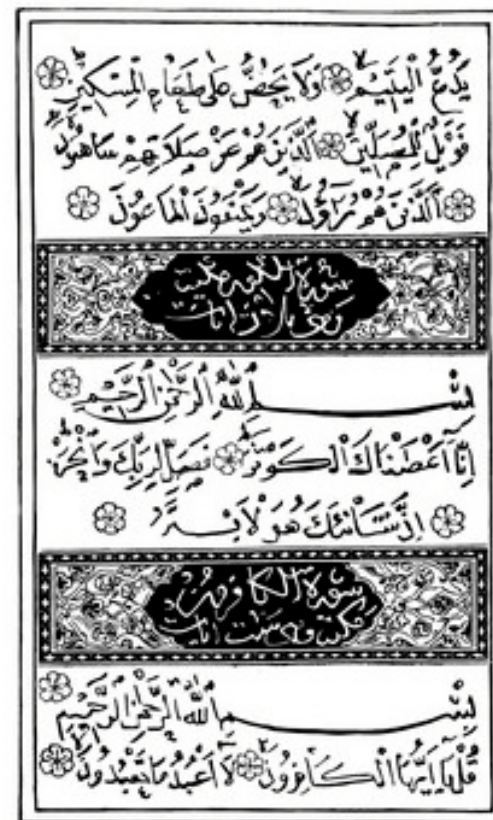 يَدُعُّ الْيَتِيمَ وَلَا يَحُضُّ عَلَى طَعَامِ الْمِسْكِينِ
فَوَيْلٌ لِلْمُصَلِّينَ اَلَّذِينَ هُمْ عَنْ صَلَاتِهِمْ سَاهُونَ
اَلَّذِينَ هُمْ يُرَاؤُنَ وَيَمْنَعُونَ الْمَاعُونَ
سورة
آيات
بِسْمِ اللَّهِ الرَّحْمَنِ الرَّحِيمِ
اِنَّا اَعْطَيْنَاكَ الْكَوْثَرَ فَصَلِّ لِرَبِّكَ وَانْحَرْ
اِنَّ شَانِئَكَ هُوَ الْاَبْتَرُ
سورة الكافرون
مكية وهي ست آيات
بِسْمِ اللَّهِ الرَّحْمَنِ الرَّحِيمِ
قُلْ يَا اَيُّهَا الْكَافِرُونَ لَا اَعْبُدُ مَا تَعْبُدُونَ